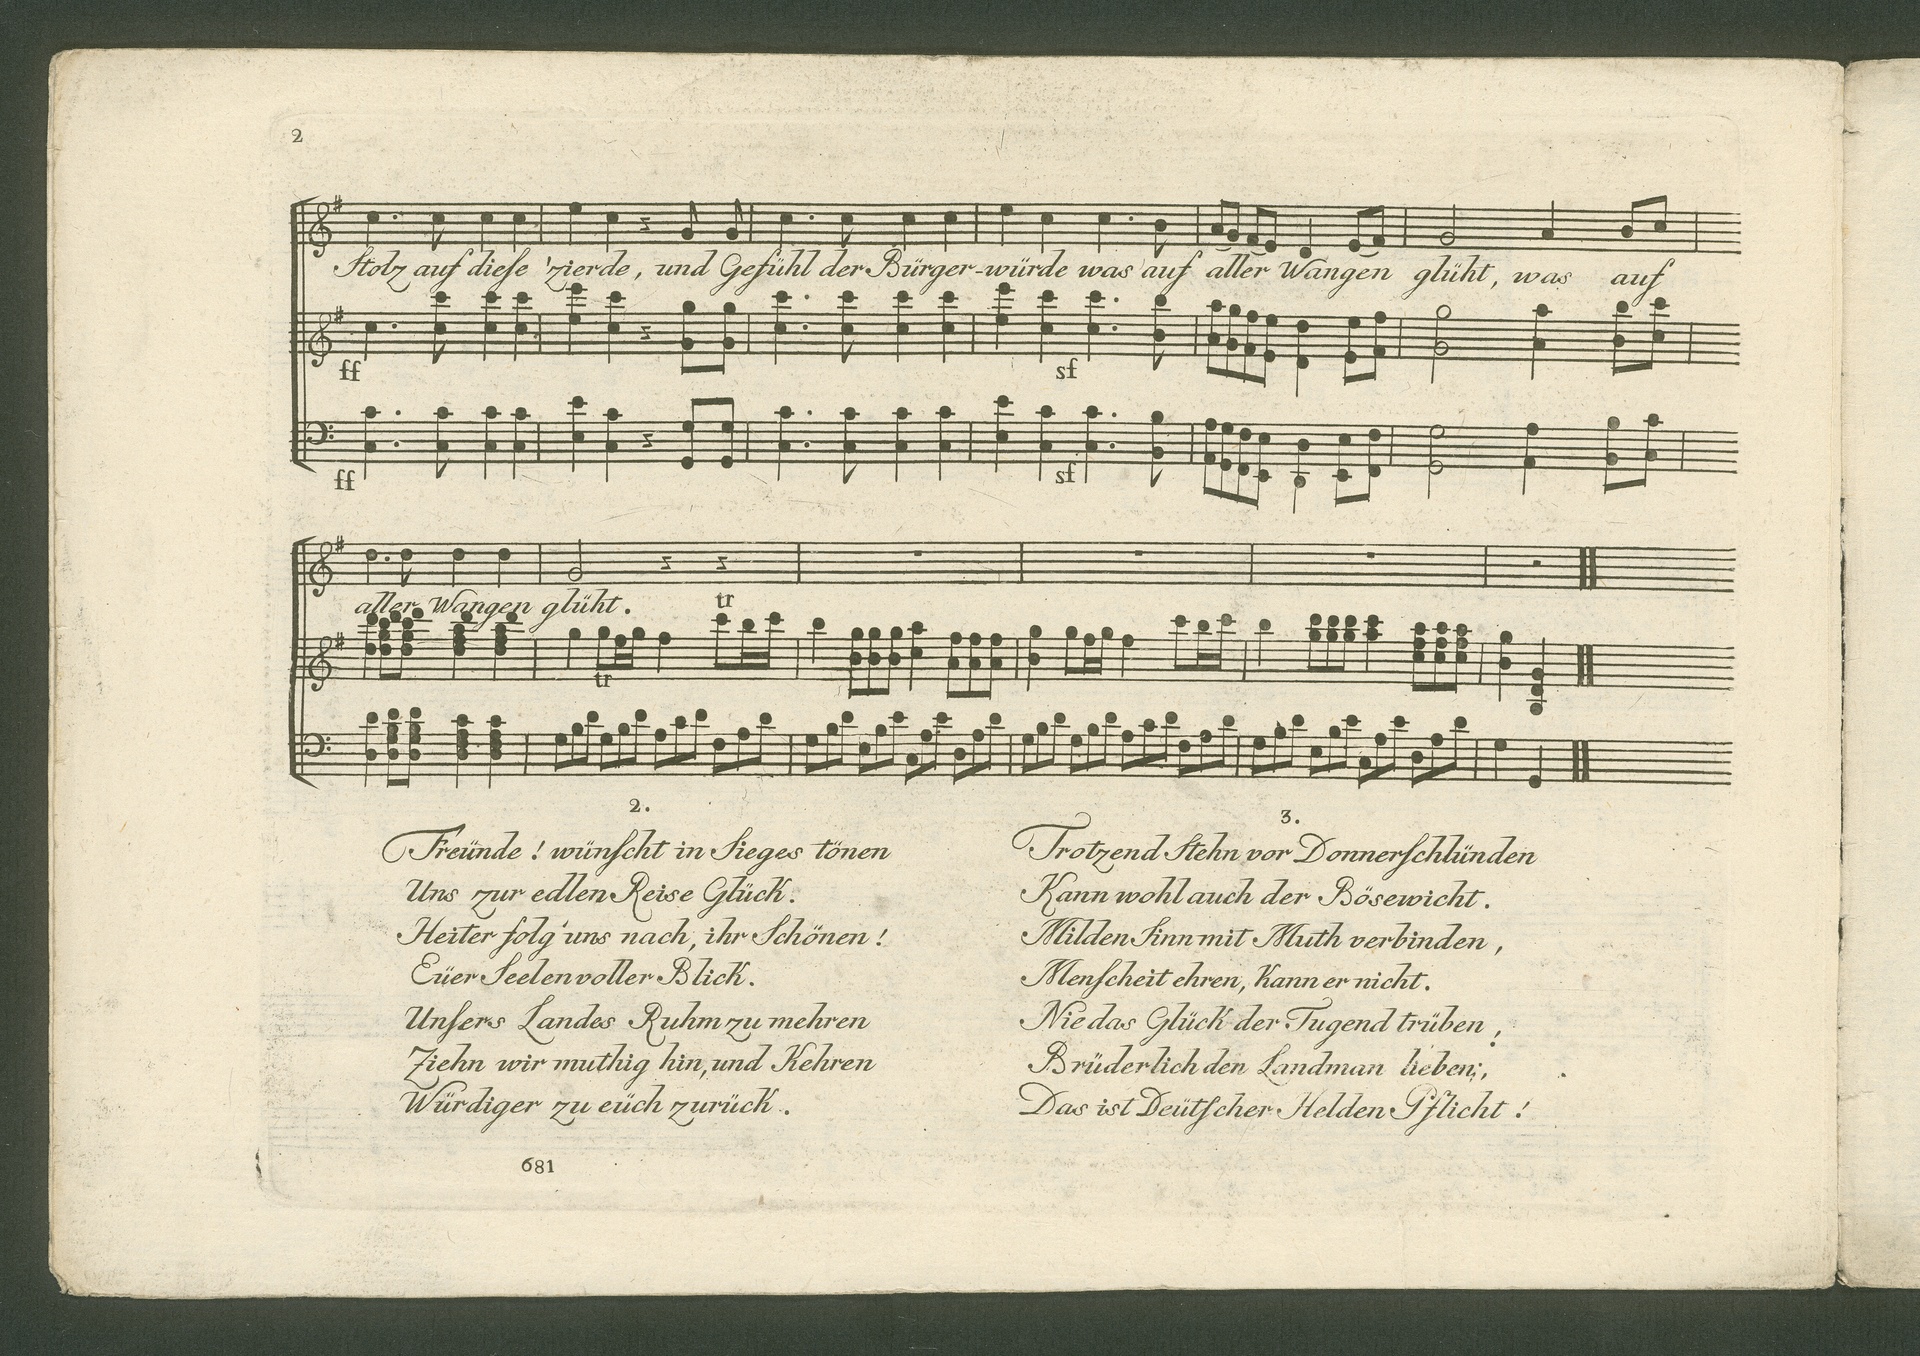 2
Stolz auf diese 'zierde, und Gefühl der Bürger-würde was auf aller Wangen glüht, was auf
ff
sf
ff
sf
aller Wangen glüht.
tr
tr
2.
Freünde! wünscht in Sieges tönen
Uns zur edlen Reise Glück.
Heiter folg' uns nach, ihr Schönen!
Eüer Seelenvoller Blick.
Unsers Landes Ruhm zu mehren
Ziehn wir muthig hin, und Kehren
Würdiger zu eüch zurück.
3.
Trotzend Stehn vor Donnerschlünden
Kann wohl auch der Bösewicht.
Milden Sinn mit Muth verbinden,
Menscheit ehren, Kann er nicht.
Nie das Glück der Tugend trüben,
Brüderlich den Landman lieben;,
Das ist Deütscher Helden Pflicht!
681